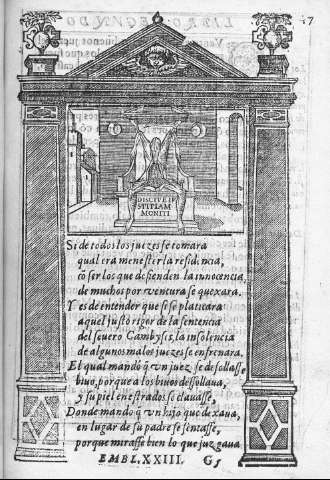 17
DISCITE IV
STITIAM
MONITI
Si de todos los juezes se tomara
qual era menester la residencia,
cõ ser los que defienden la innocencia
de muchos por ventura se quexara.
Y es de entender que si se platicara
aquel justo rigor de la sentencia
del seuero Cambyses, la insolencia
de algunos malos juezes se enfrenara.
El qual mandò q̃ vn juez se desollasse
biuo, porque a los biuos dessollaua,
y su piel en estrados se clauasse,
Donde mandò q̃ vn hijo que dexaua,
en lugar de su padre se sentasse,
porque mirasse bien lo que juzgaua
EMBL. XXIII. G5